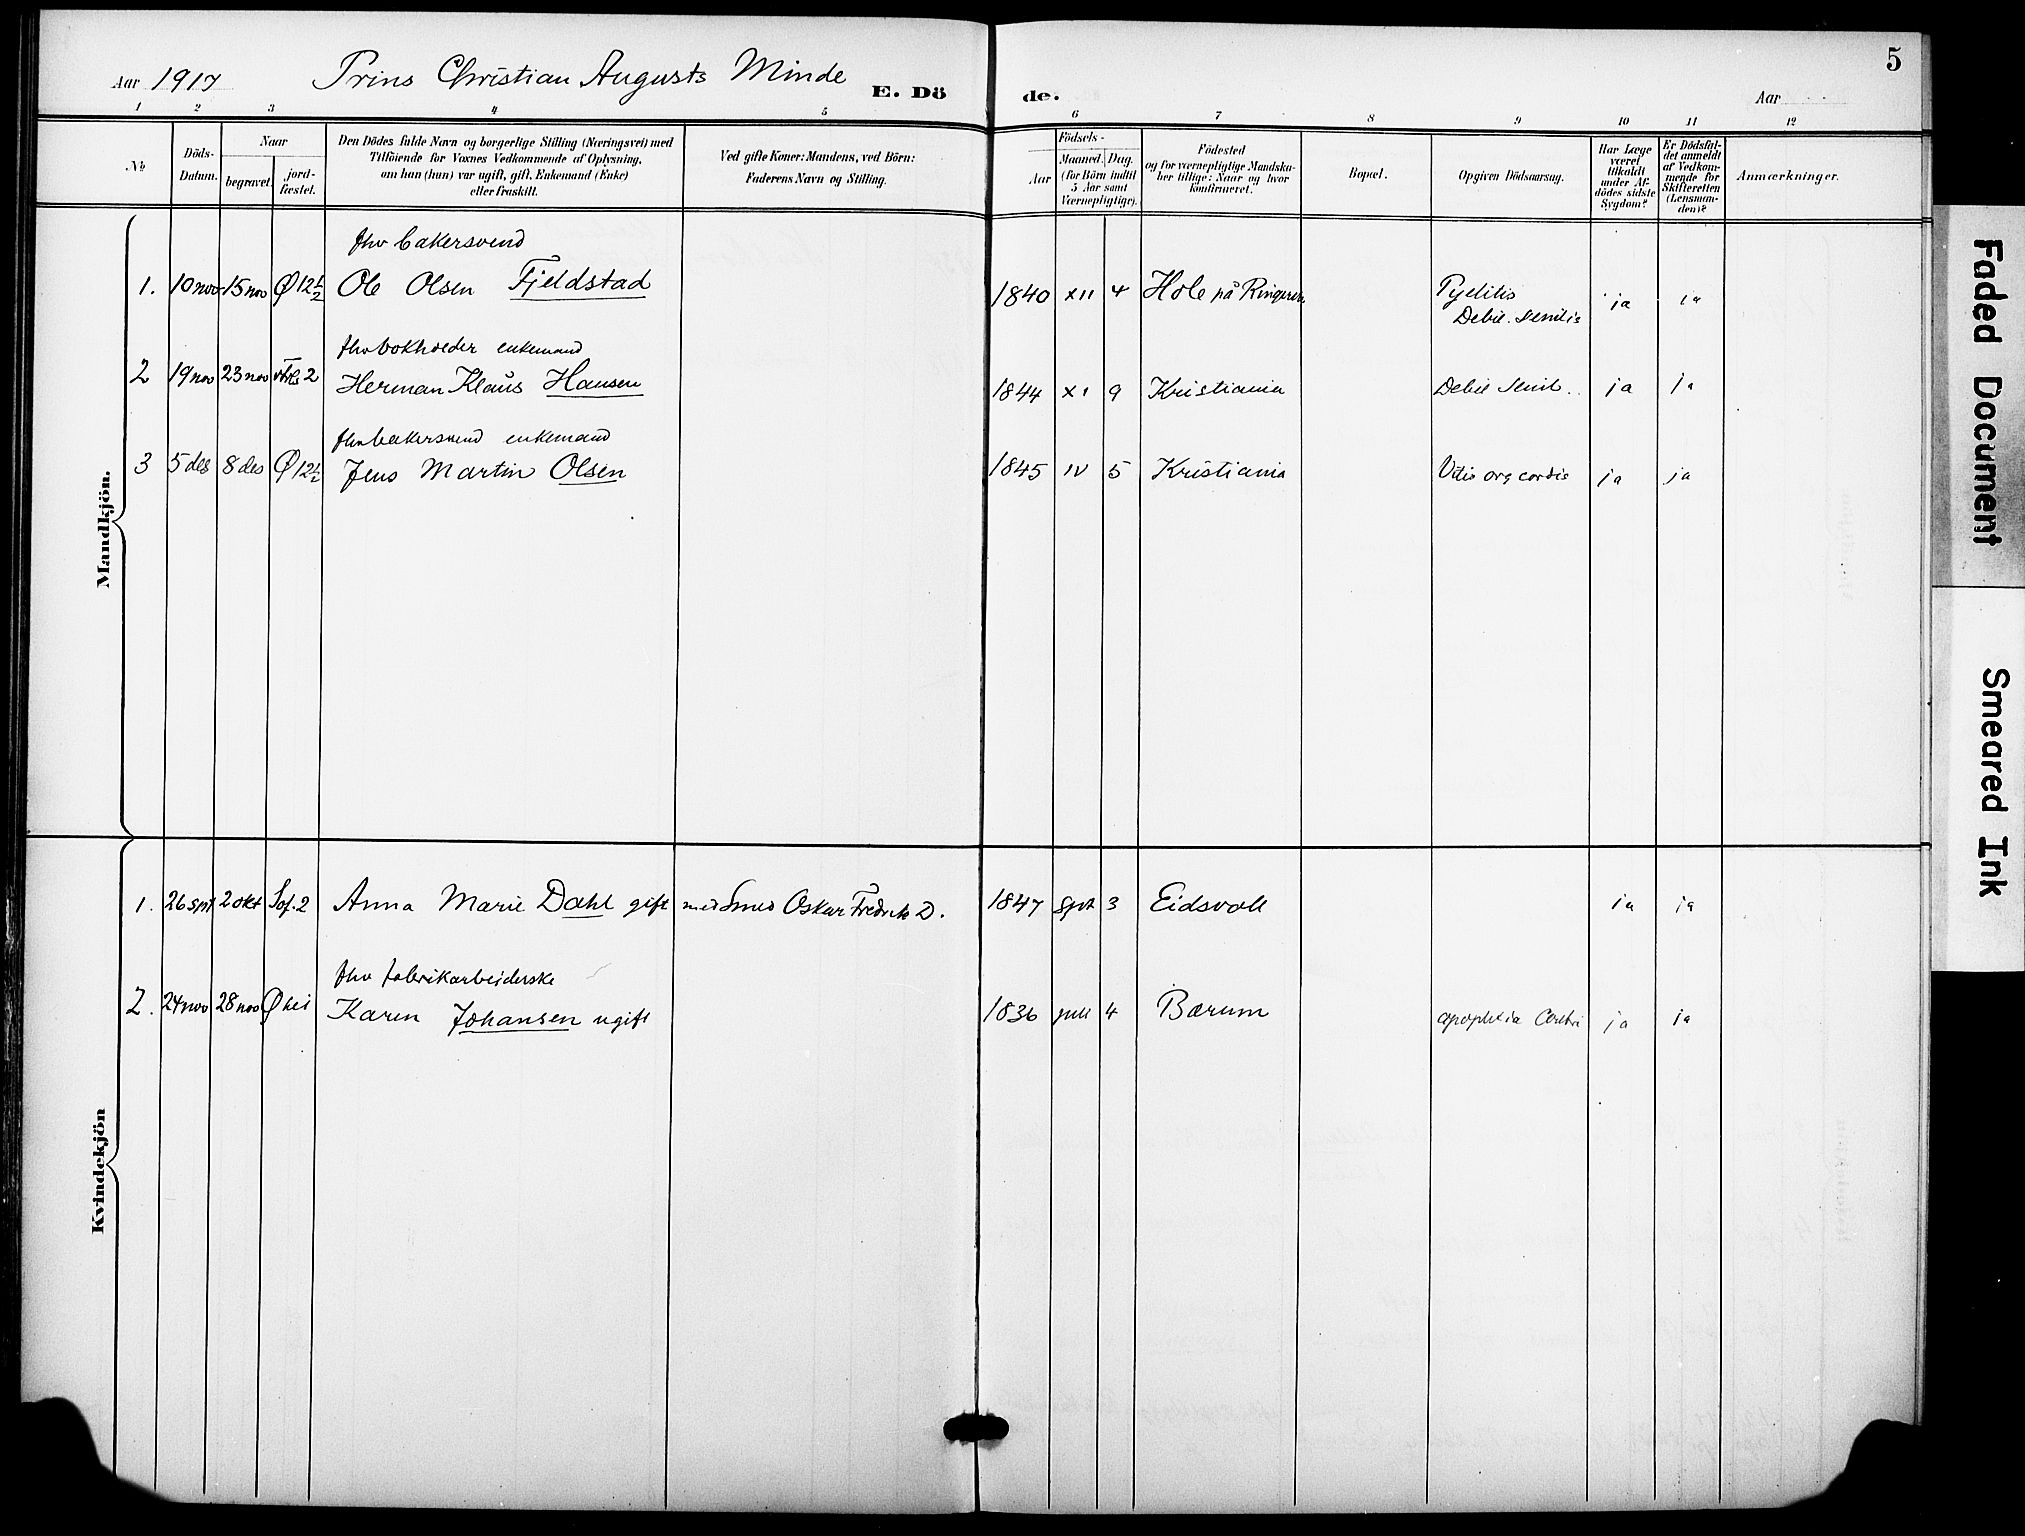 5
Aar 1917 Prins Christian Augusts Minde E. Dö de. Aar
1 2 3 4 5 6 7 8 9 10 11 12
№
Döds-
Datum.
Naar
begravet.
jord-
fæstet.
Den Dödes fulde Navn og borgerlige Stilling (Næringsvei) med
Tilföiende for Voxnes Vedkommende af Oplysning,
om han (hun) var ugift, gift, Enkemand (Enke)
eller fraskilt.
Ved gifte Koner: Mandens, ved Börn:
Faderens Navn og Stilling.
Födsels-
Aar
Maaned. Dag.
(for Börn indtil
5 Aar samt
Værnepligtige).
Födested
og for værnepligtige Mandska-
ber tillige: Naar og hvor
konfirmeret.
Bopæl.
Opgiven Dödsaarsag.
Har Læge
været
tilkaldt
under Af-
dödes sidste
Sygdom?
Er Dödsfal-
det anmeldt
af Vedkom-
mende for
Skifteretten
(Lensman-
den)?
Anmærkninger.
Mandkjön.
fhv bakersvend
1. 10 nov 15 nov Ø 12 1/2 Ole Olsen Fjeldstad 1840 XII 4 Hole på Ringerike Pyelitis ja ja
Debil. senilis
fhv bokholder enkemand
2 19 nov 23 nov 2 Herman Klaus Hansen 1844 XI 9 Kristiania Debil senil. ja ja
fhv bakersvend enkemand
3 5 des 8 des Ø 12 1/2 Jens Martin Olsen 1845 IV 5 Kristiania Vitis org cordis ja ja
Kvindekjön
1. 26 spt 2 okt Sof. 2 Anna Marie Dahl gift med Smed Oskar Fredrik D. 1847 spt 3 Eidsvoll ja ja
fhv fabrikarbeiderske
2. 24 nov 28 nov Ø kl 1 Karen Johansen ugift 1836 juli 4 Bærum apoplexia Cerebri ja ja
Faded Document
Smeared Ink